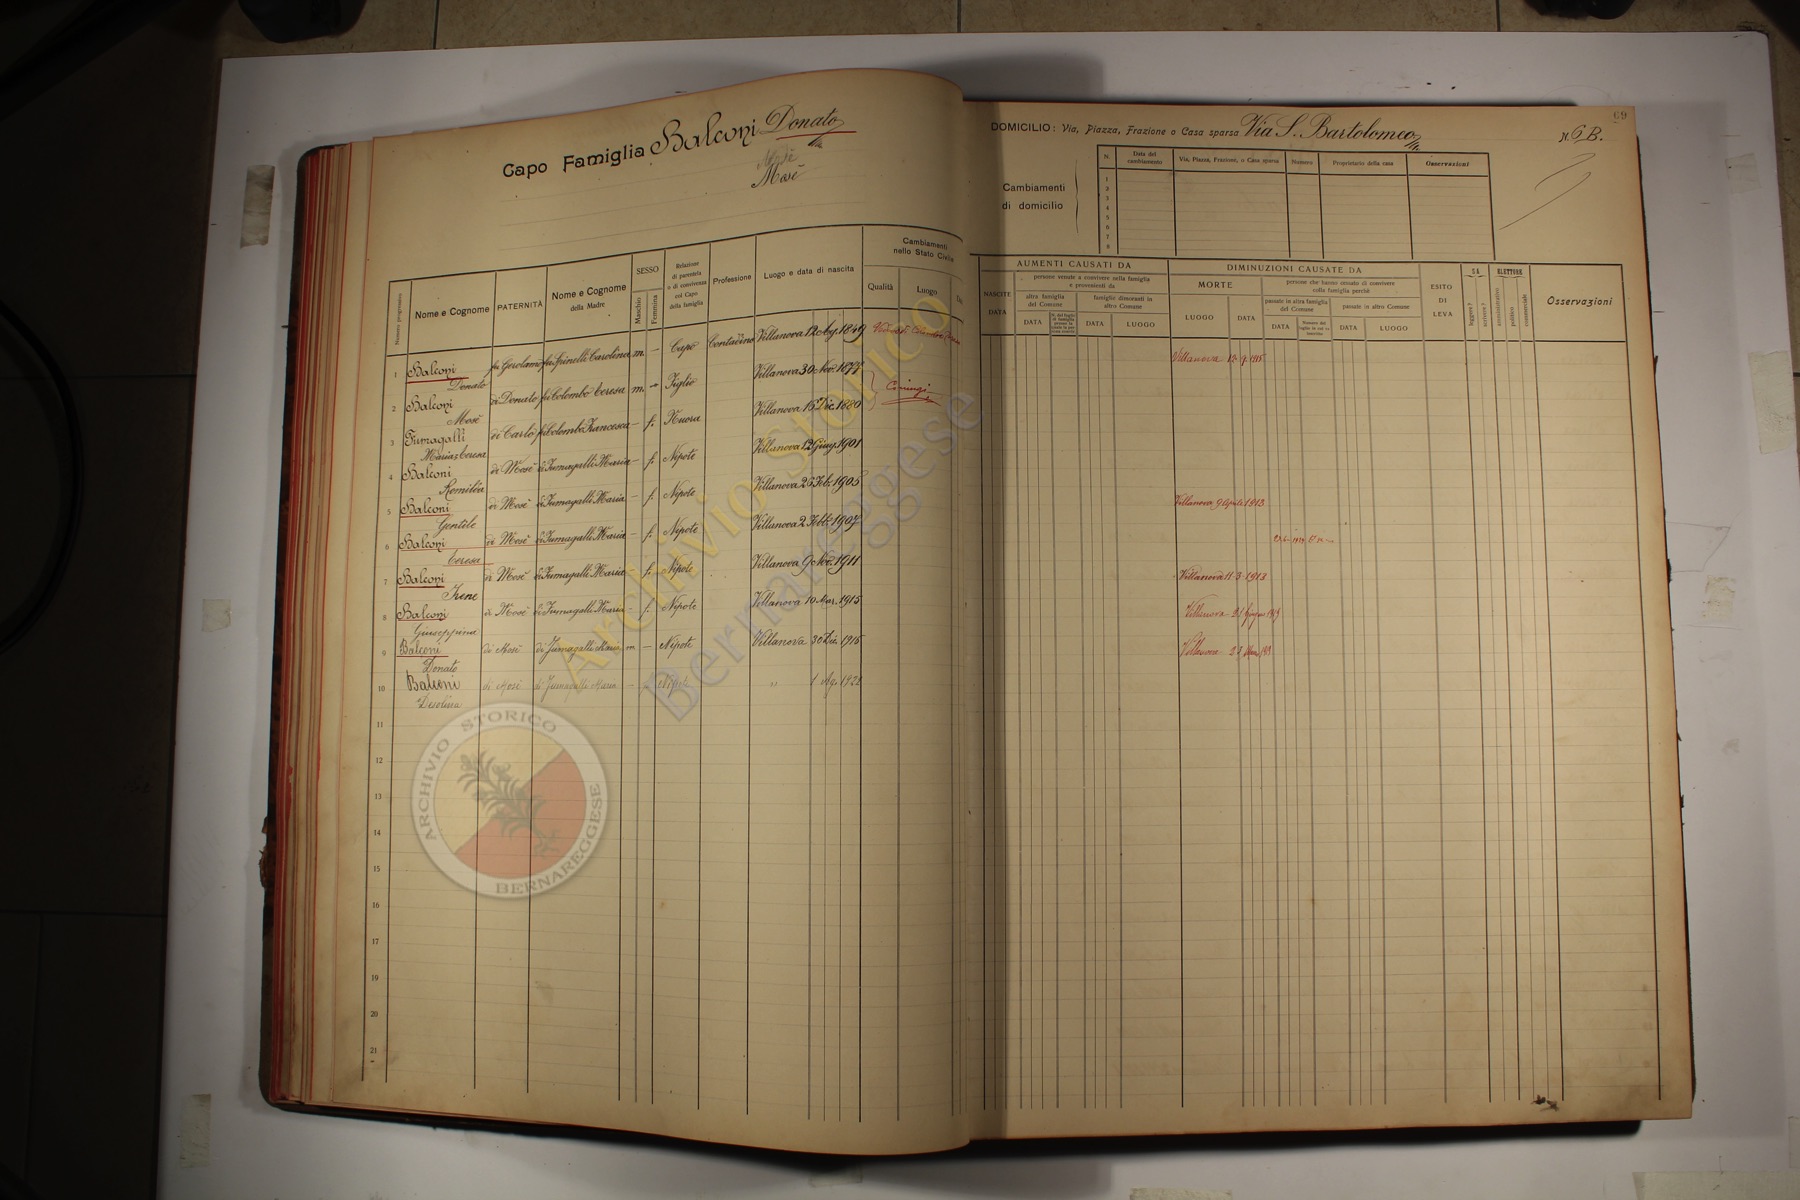 Capo Famiglia Balconi Donato
Mosè
Mosè
DOMICILIO: Via, Piazza, Frazione o Casa sparsa Via S. Bartolomeo N. 6 B.
69
Cambiamenti di domicilio
N. Data del cambiamento Via, Piazza, Frazione, o Casa sparsa Numero Proprietario della casa Osservazioni
1
2
3
4
5
6
7
8
Numero progressivo Nome e Cognome PATERNITÀ Nome e Cognome della Madre SESSO Maschio Femmina Relazione di parentela o di convivenza col Capo della famiglia Professione Luogo e data di nascita Cambiamenti nello Stato Civile Qualità Luogo
AUMENTI CAUSATI DA
NASCITE DATA
persone venute a convivere nella famiglia e provenienti da
altra famiglia del Comune DATA
famiglie dimoranti in altro Comune DATA LUOGO
DIMINUZIONI CAUSATE DA
MORTE LUOGO DATA
persone che hanno cessato di convivere colla famiglia perchè
passate in altra famiglia del Comune DATA
passate in altro Comune DATA LUOGO
ESITO DI LEVA
SA leggere? scrivere?
ELETTORE amministrativo politico commerciale
Osservazioni
1 Balconi Donato fu Gerolamo fu Spinelli Carolina m. — Capo Contadino Villanova 12 Ag. 1849 Villanova 12-9-1915
2 Balconi Mosè di Donato fu Colombo Teresa m. — Figlio Villanova 30 Nov. 1877 Coniugi
3 Fumagalli Maria Teresa di Carlo fu Colombo Francesca — f. Nuora Villanova 16 Dic. 1880
4 Balconi Romilda di Mosè di Fumagalli Maria — f. Nipote Villanova 12 Giug. 1901
5 Balconi Gentile di Mosè di Fumagalli Maria — f. Nipote Villanova 25 Feb. 1905 Villanova 9 Aprile 1913
6 Balconi Teresa di Mosè di Fumagalli Maria — f. Nipote Villanova 2 Febb. 1907
7 Balconi Irene di Mosè di Fumagalli Maria — f. Nipote Villanova 9 Nov. 1911 Villanova 11-3-1913
8 Balconi Giuseppina di Mosè di Fumagalli Maria — f. Nipote Villanova 10 Mar. 1915 Villanova
9 Balconi Donato di Mosè di Fumagalli Maria m — Nipote Villanova 30 Dic. 1916 Villanova
10 Balconi Desolina di Mosè di Fumagalli Maria — Nipote " 1 Ag. 1922
11
12
13
14
15
16
17
18
19
20
21
Archivio Storico
Bernareggese
ARCHIVIO STORICO
BERNAREGGESE